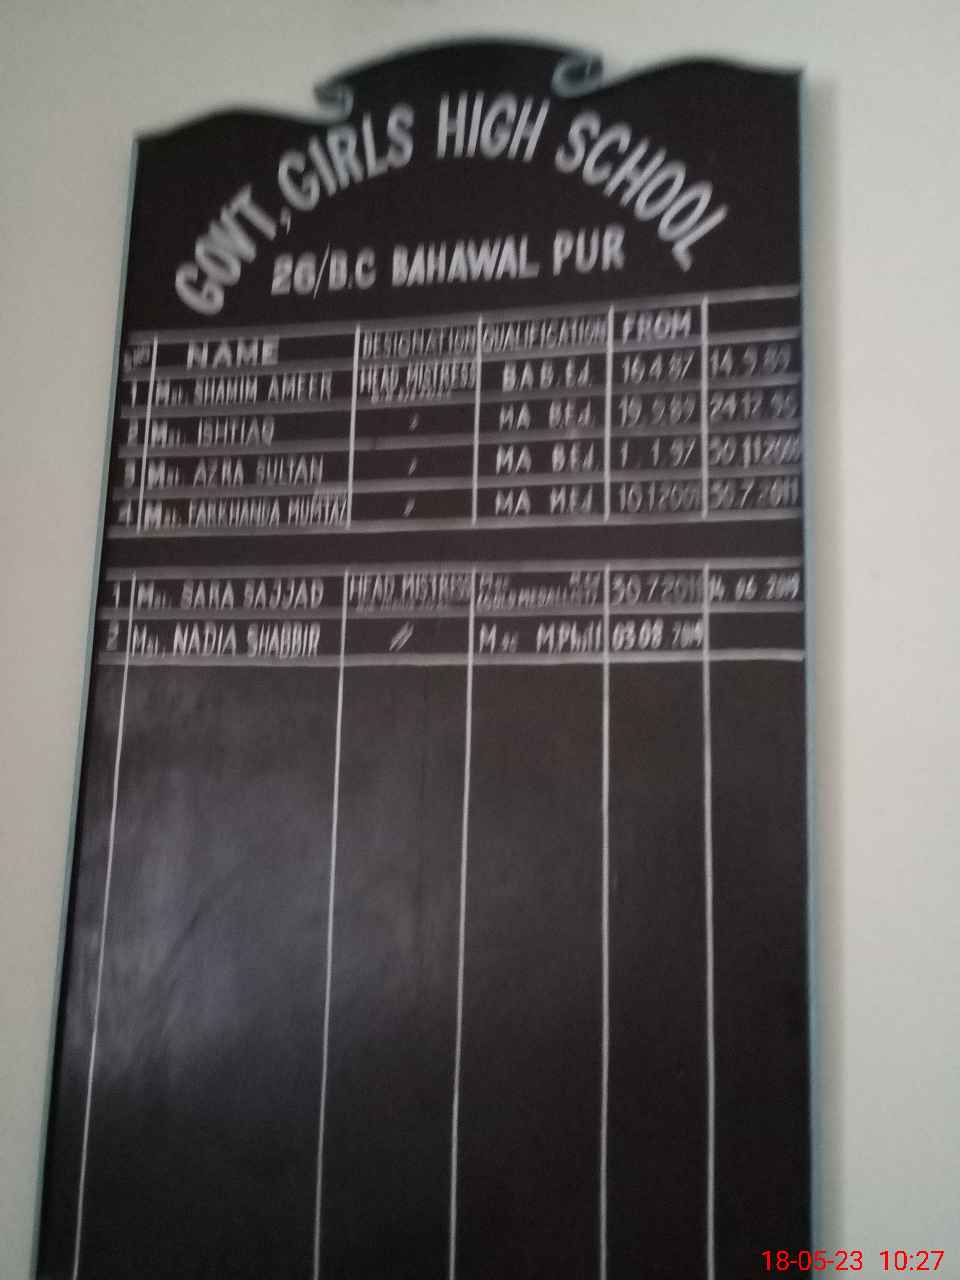 GOVT, GIRLS HIGH SCHOOL
26/B.C BAHAWAL PUR
NAME DESIGNATION QUALIFICATION FROM
1 Mst. SHAMIM AMEER HEAD MISTRESS B.A B.Ed. 16.4.87 14.9.89
2 Mst. ISHTIAQ " MA B.Ed. 19.9.89 24.12.96
3 Mst. AZRA SULTAN " MA B.Ed. 1.1.97 30.11.2008
4 Mst. FARKHANDA MUMTAZ " MA M.Ed. 10.1.2009 30.7.2011
1 Mst. SARA SAJJAD HEAD MISTRESS 30.7.2011 14.06.2019
2 Mst. NADIA SHABBIR " M sc M.Phill 03.08.2019
18-05-23 10:27